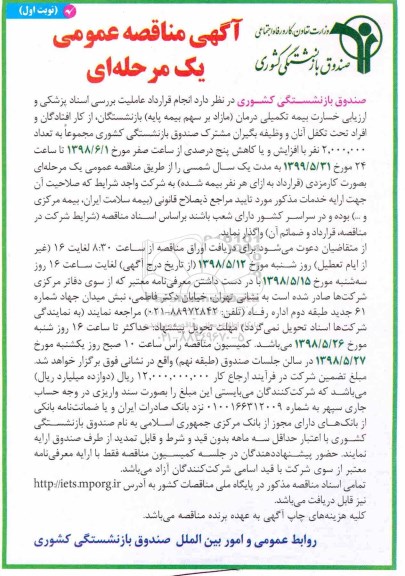 (نوبت اول)
وزارت تعاون، کار و رفاه اجتماعی
صندوق بازنشستگی کشوری
آگهی مناقصه عمومی
یک مرحله‌ای
صندوق بازنشستگی کشوری در نظر دارد انجام قرارداد عاملیت بررسی اسناد پزشکی و
ارزیابی خسارت بیمه تکمیلی درمان (مازاد بر سهم بیمه پایه) بازنشستگان، از کار افتادگان و
افراد تحت تکفل آنان و وظیفه بگیران مشترک صندوق بازنشستگی کشوری مجموعاً به تعداد
۲,۰۰۰,۰۰۰ نفر با افزایش و یا کاهش پنج درصدی از ساعت صفر مورخ ۱۳۹۸/۶/۱ تا ساعت
۲۴ مورخ ۱۳۹۹/۵/۳۱ به مدت یک سال شمسی را از طریق مناقصه عمومی یک مرحله‌ای
بصورت کارمزدی (قرارداد به ازای هر نفر بیمه شده) به شرکت واجد شرایط که صلاحیت آن
جهت ارایه خدمات مذکور مورد تایید مراجع ذیصلاح قانونی (بیمه سلامت ایران، بیمه مرکزی
و ...) بوده و در سراسر کشور دارای شعب باشند براساس اسناد مناقصه (شرایط شرکت در
مناقصه، قرارداد و ضمائم آن) واگذار نماید.
از متقاضیان دعوت می‌شود برای دریافت اوراق مناقصه از ساعت ۸:۳۰ لغایت ۱۶ (غیر
از ایام تعطیل) روز شنبه مورخ ۱۳۹۸/۵/۱۲ (از تاریخ درج آگهی) لغایت ساعت ۱۶ روز
سه‌شنبه مورخ ۱۳۹۸/۵/۱۵ با در دست داشتن معرفی‌نامه معتبر که از سوی دفاتر مرکزی
شرکت‌ها صادر شده است به نشانی تهران، خیابان دکتر فاطمی، نبش میدان جهاد شماره
۶۱ جدید طبقه دوم اداره رفاه (تلفن: ۸۸۹۷۲۸۴۲-۰۲۱) مراجعه نمایند (به نمایندگی
شرکت‌ها اسناد تحویل نمی‌گردد) مهلت تحویل پیشنهاد حداکثر تا ساعت ۱۶ روز شنبه
مورخ ۱۳۹۸/۵/۲۶ می‌باشد. کمیسیون مناقصه راس ساعت ۱۰ صبح روز یکشنبه مورخ
۱۳۹۸/۵/۲۷ در سالن جلسات صندوق (طبقه نهم) واقع در نشانی فوق برگزار خواهد شد.
مبلغ تضمین شرکت در فرآیند ارجاع کار ۱۲,۰۰۰,۰۰۰,۰۰۰ ریال (دوازده میلیارد ریال)
می‌باشد که شرکت‌کنندگان می‌بایستی این مبلغ را بصورت سند واریزی در وجه حساب
جاری سپهر به شماره ۰۱۰۰۱۶۶۳۱۲۰۰۹ نزد بانک صادرات ایران و یا ضمانت‌نامه بانکی
از بانک‌های دارای مجوز از بانک مرکزی جمهوری اسلامی به نام صندوق بازنشستگی
کشوری با اعتبار حداقل سه ماهه بدون قید و شرط و قابل تمدید از طرف صندوق ارایه
نمایند. حضور پیشنهاددهندگان در جلسه کمیسیون مناقصه فقط با ارایه معرفی‌نامه
معتبر از سوی شرکت با قید اسامی شرکت‌کنندگان آزاد می‌باشد.
تمامی اسناد مناقصه مذکور در پایگاه ملی مناقصات کشور به آدرس http://iets.mporg.ir
نیز قابل دریافت می‌باشد.
کلیه هزینه‌های چاپ آگهی به عهده برنده مناقصه می‌باشد.
روابط عمومی و امور بین الملل صندوق بازنشستگی کشوری